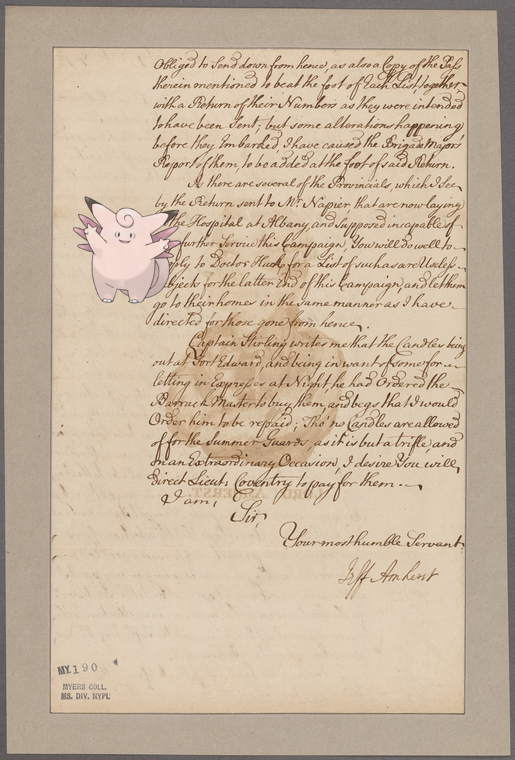 Obliged to send down from hence, as also a Copy of the Pass
therein mentioned to be at the foot of Each List, together
with a Return of their Numbers as they were intended
to have been Sent; but some alterations happening
before they Embarked, I have caused the Brigade Majors
Report of them, to be added at the foot of said Return.
As there are several of the Provincials, which I See
by the Return sent to Mr. Napier that are now laying
the Hospital at Albany, and supposed incapable of
further Service this Campaign, You will do well to
ply to Doctor Huck for a List of such as are Useless
bjects for the latter End of this Campaign, and let them
go to their homes in the same manner as I have
directed for those gone from hence.
Captain Stirling writes me that the Candles being
out at Fort Edward, and being in want of some for
letting in Expresses at Night he had Ordered the
Barrack Master to buy them, and begs that I would
Order him to be repaid; Tho' no Candles are allowed
of for the Summer Guards, as it is but a trifle, and
on an Extraordinary Occasion, I desire You will
Direct Lieut: Coventry to pay for them.
I am,
Sir
Your most humble Servant,
Jeff Amherst
MY. 190
MYERS COLL.
MS. DIV. NYPL